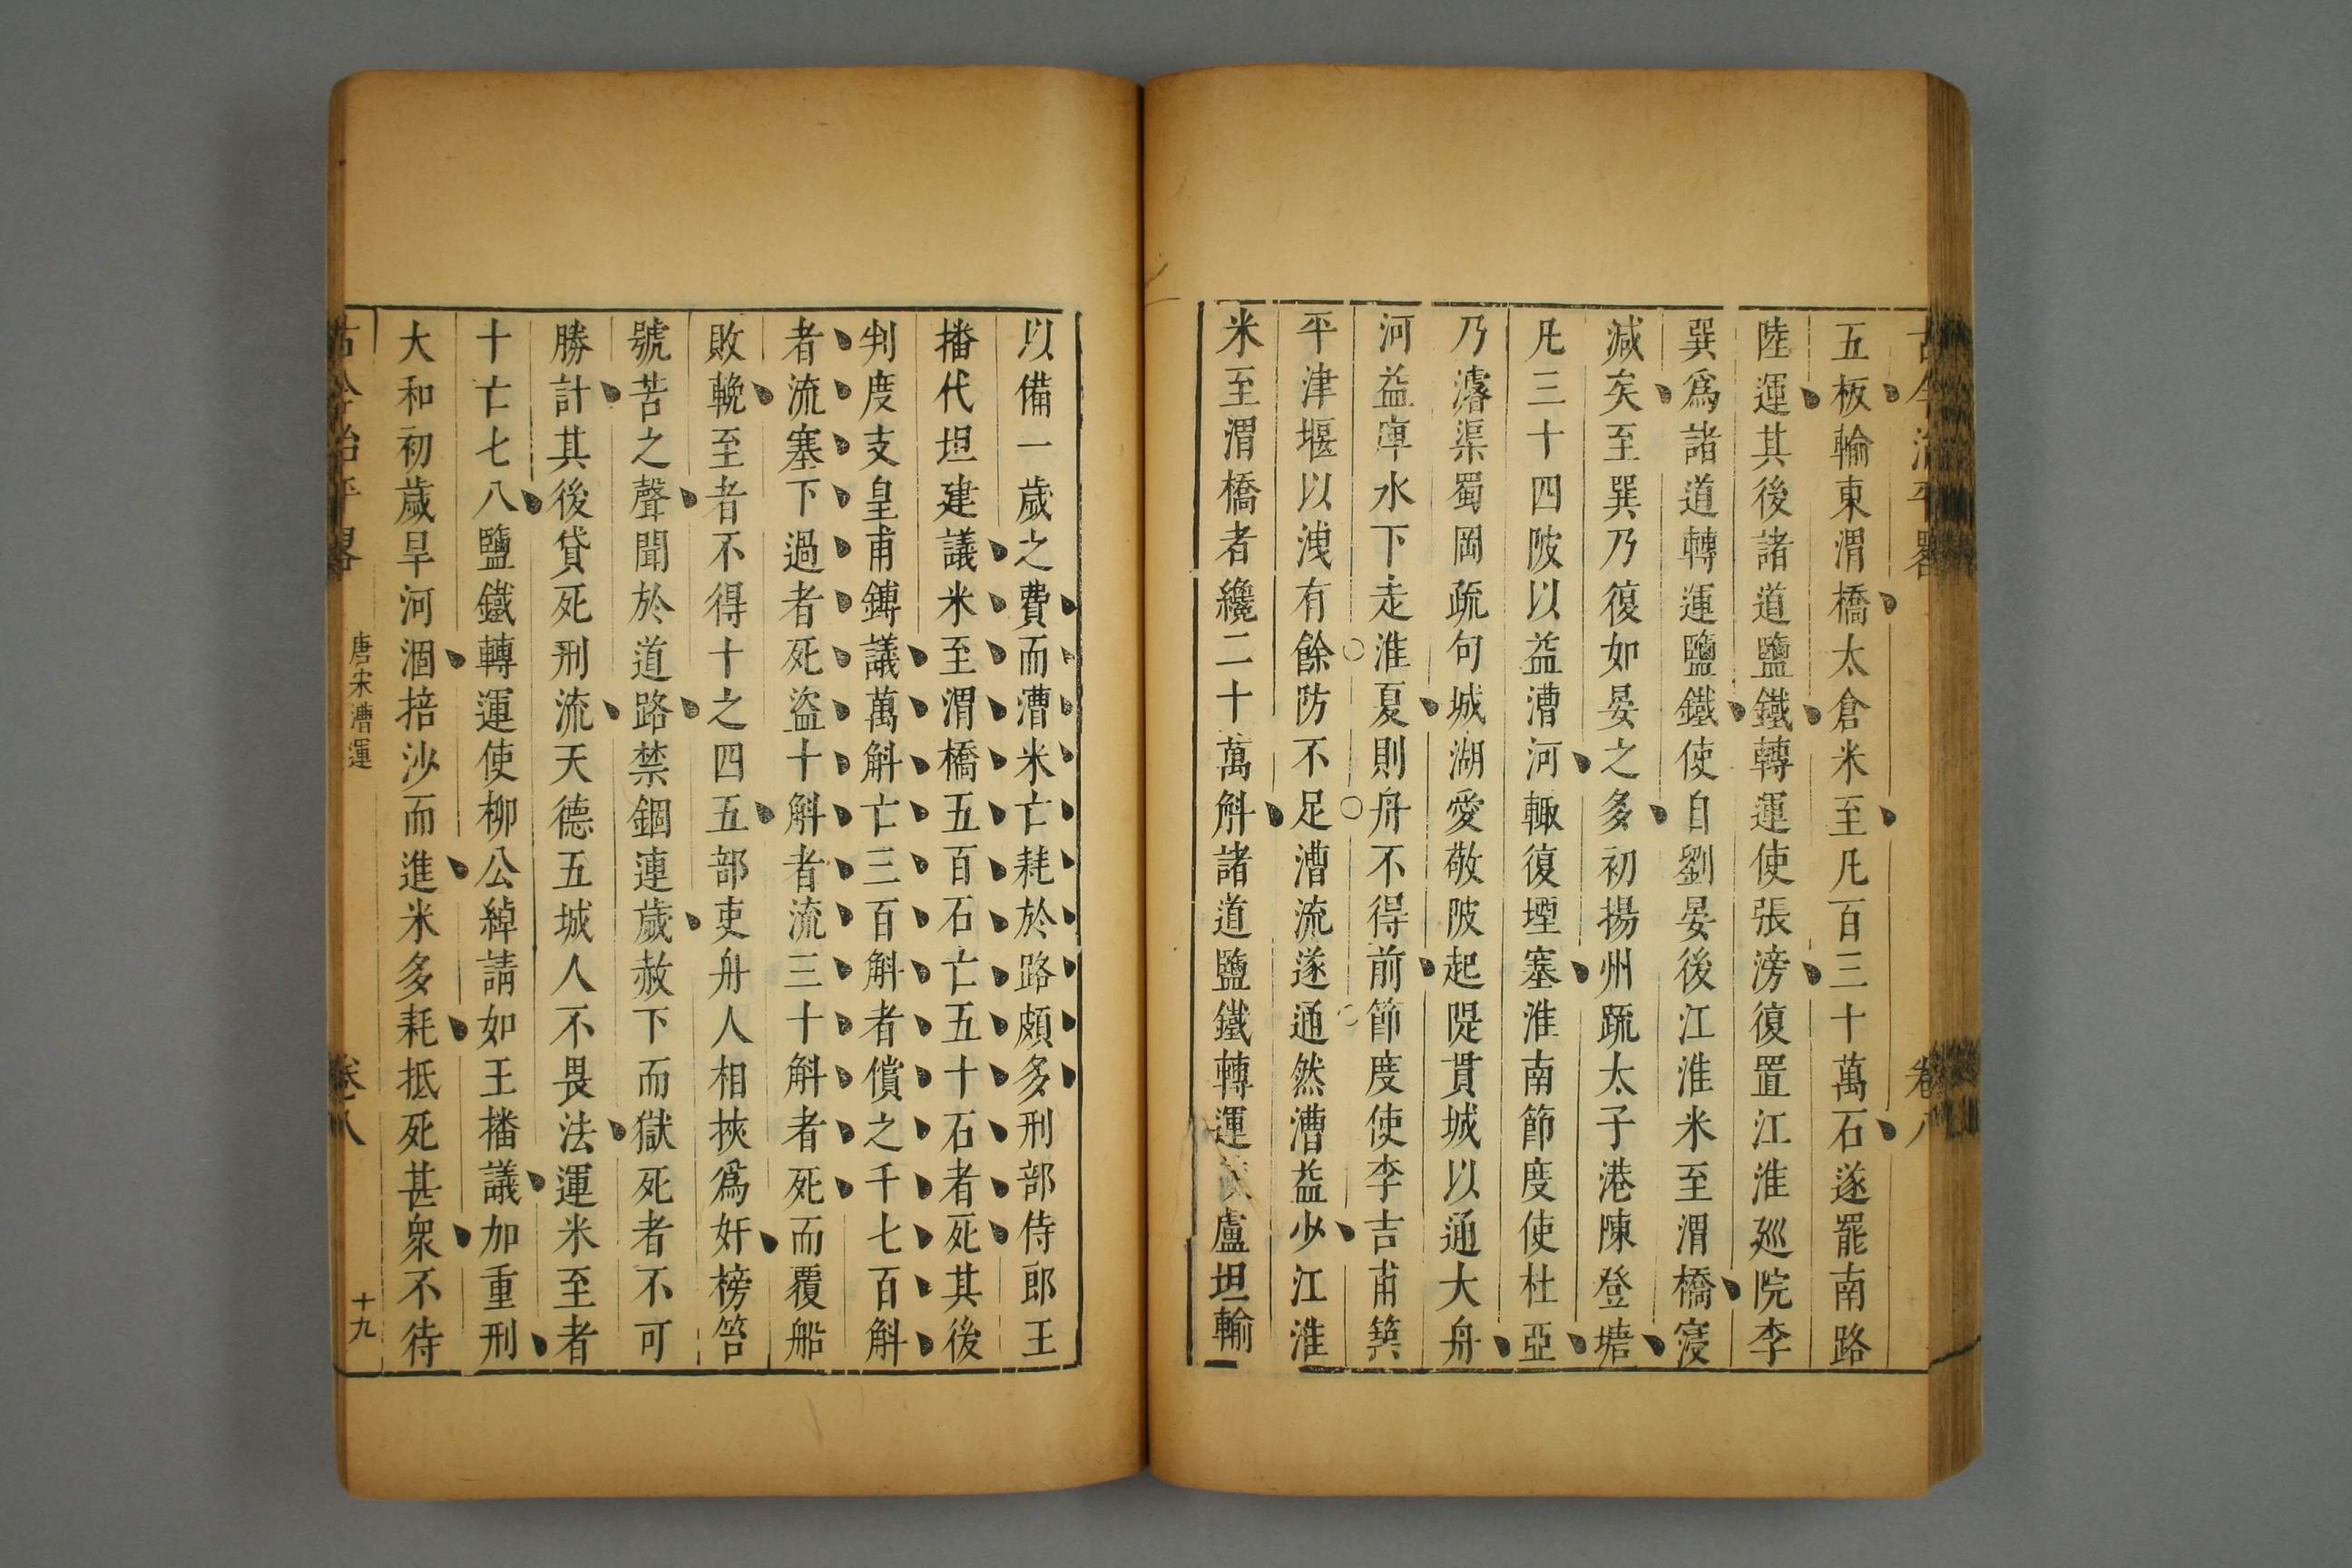 古今治平畧 卷八
五板輸東渭橋太倉米至凡百三十萬石遂罷南路
陸運其後諸道鹽鐵轉運使張滂復置江淮廵院李
巽爲諸道轉運鹽鐵使自劉晏後江淮米至渭橋寖
減矣至巽乃復如晏之多初揚州疏太子港陳登塘
凡三十四陂以益漕河輙復堙塞淮南節度使杜亞
乃濬渠蜀岡疏句城湖愛敬陂起隄貫城以通大舟
河益庳水下走淮夏則舟不得前節度使李吉甫築
平津堰以洩有餘防不足漕流遂通然漕益少江淮
米至渭橋者纔二十萬斛諸道鹽鐵轉運盧坦輸
以備一歲之費而漕米亡耗於路頗多刑部侍郎王
播代坦建議米至渭橋五百石亡五十石者死其後
判度支皇甫鎛議萬斛亡三百斛者償之千七百斛
者流塞下過者死盜十斛者流三十斛者死而覆船
敗輓至者不得十之四五部吏舟人相挾爲奸榜笞
號苦之聲聞於道路禁錮連歲赦下而獄死者不可
勝計其後貸死刑流天德五城人不畏法運米至者
十亡七八鹽鐵轉運使柳公綽請如王播議加重刑
大和初歲旱河涸掊沙而進米多耗抵死甚衆不待
古今治平畧 唐宋漕運 卷八 十九